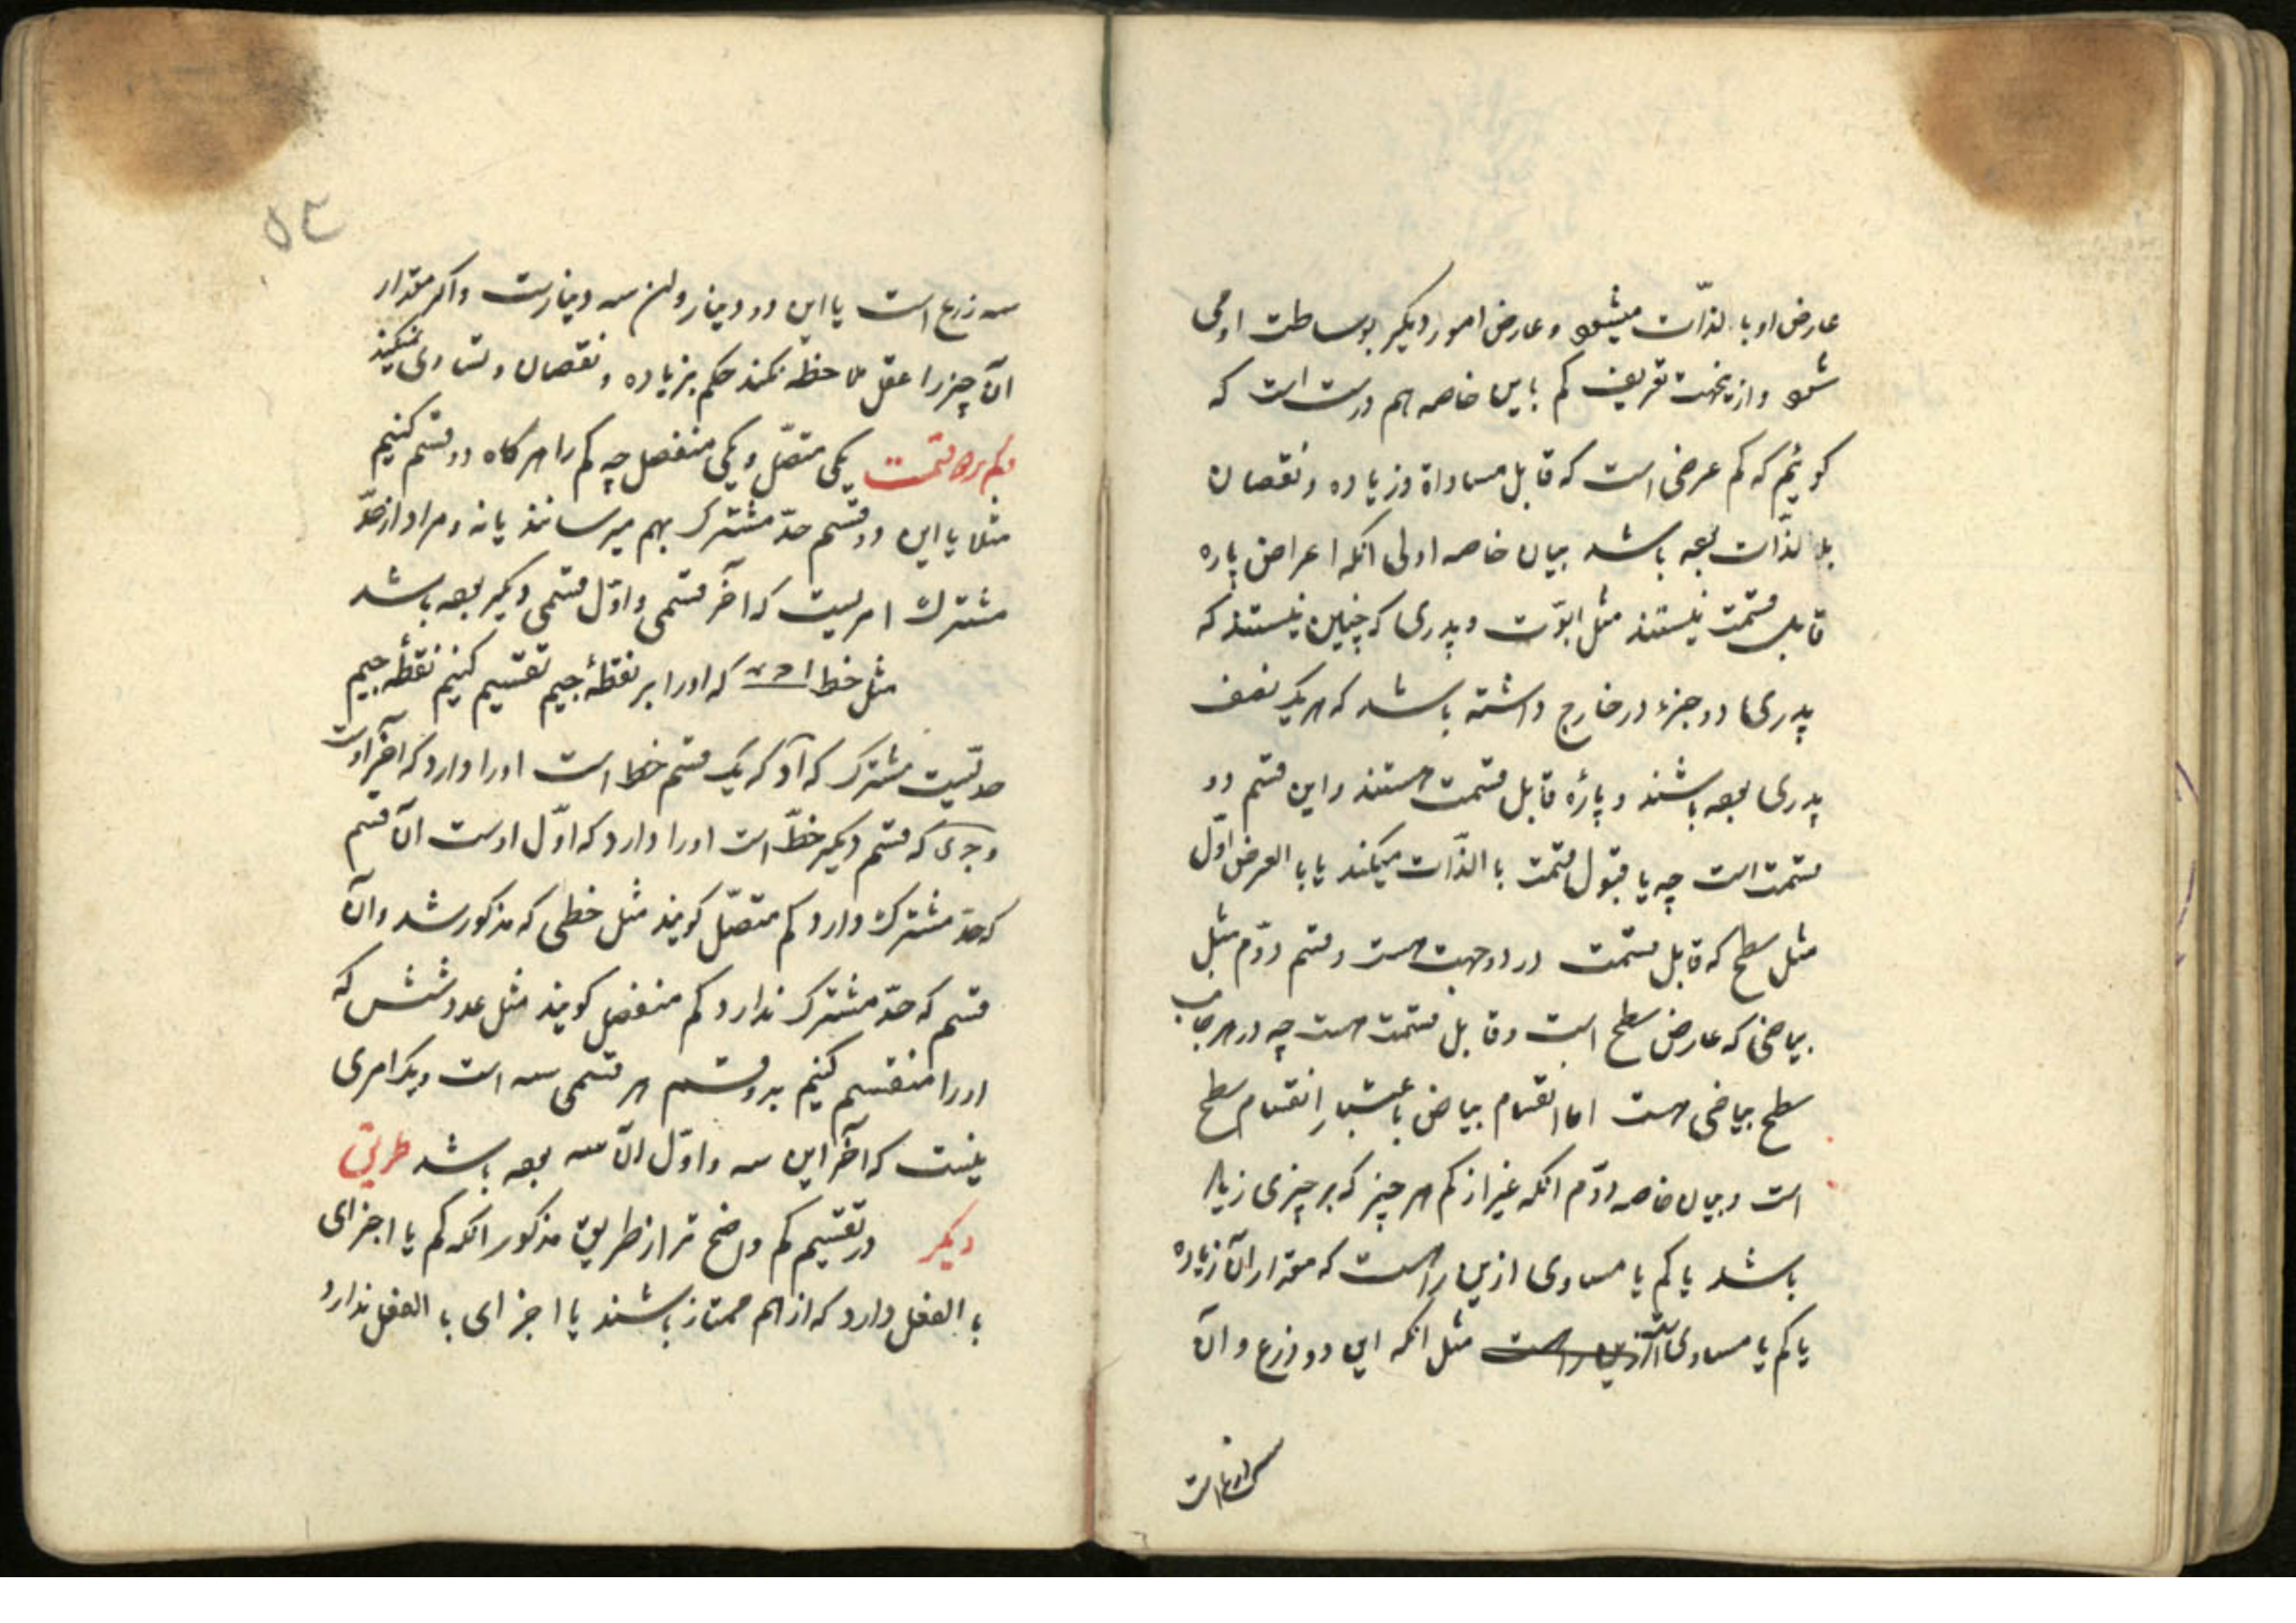 عارض او بالذّات میشود و عارض امور دیکر بوساطت او می
شود و ازینجهت تعریف کم باین خاصه هم درست است که
کوئیم که کم عرضی است که قابل مساواة و زیاده و نقصان
بالذّات بوده باشد بیان خاصه اولی انکه اعراض پاره
قابل قسمت نیستند مثل ابوّت و پدری که چنین نیستند که
پدری را دو جزء در خارج داشته باشد که هر یک نصف
پدری بوده باشند و پارهٔ قابل قسمت هستند و این قسم دو
قسمت است چه یا قبول قسمت با الذّات میکند یا با العرض اوّل
مثل سطح که قابل قسمت در دو جهت هست و قسم دوّم مثل
بیاضی که عارض سطح است و قابل قسمت هست چه در هر جانب
سطح بیاضی هست اما انقسام بیاض باعتبار انقسام سطح
است و بیان خاصه دوّم انکه غیر از کم هر چیز که بر چیزی زیاد
باشد یا کم یا مساوی ازین راهست که مقدار ان زیاده
یا کم یا مساوی است مثل انکه این دو ذرع و آن
سه ذرع است
۵۳
سه زرع است یا این دو دینار و ان سه دینارست و اکر مقدار
آن چیز را عقل ملاحظه نکند حکم بزیاده و نقصان و تساوی نمیکند
کم بر دو قسمت یکی متصّل و یکی منفصل چه کم را هر کاه دو قسم کنیم
مثلا یا این دو قسم حدّ مشترک بهم میرسانند یا نه و مراد از حدّ
مشترک امریست که آخر قسمی و اوّل قسمی دیکر بوده باشد
مثل خط ا ج د که او را بر نقطهٔ جیم تقسیم کنیم نقطهٔ جیم
حدّیست مشترک که اج که یک قسم خط است او را دارد که آخر اوست
و که قسم دیکر خطّ است او را دارد که اوّل اوست آن قسم
که حدّ مشترک دارد کم متصّل کویند مثل خطی که مذکور شد و آن
قسم که حدّ مشترک ندارد کم منفصل کویند مثل عدد شش که
او را منقسم کنیم بدو قسم هر قسمی سه است و یک امری
نیست که آخر این سه و اوّل آن سه بوده باشد طریق
دیکر در تقسیم کم واضح تر از طریق مذکور انکه کم یا اجزای
با الفعل دارد که از هم ممتاز باشند یا اجزای با الفعل ندارد